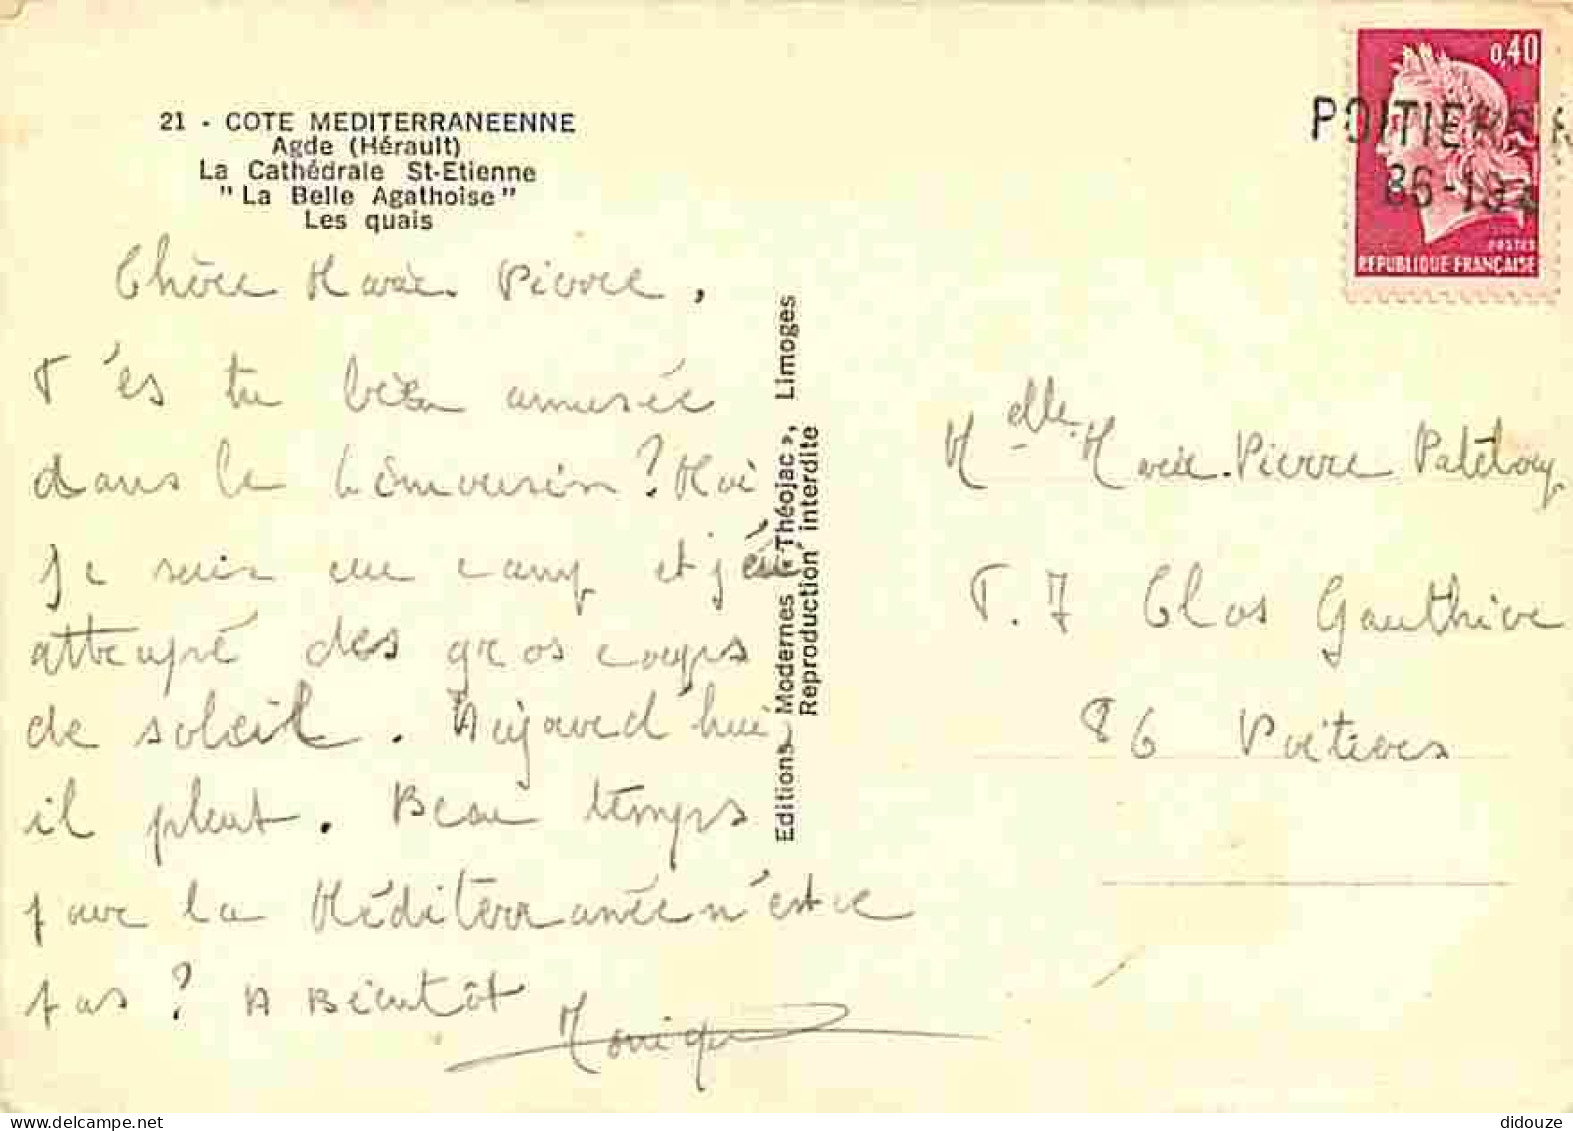 21 - COTE MEDITERRANEENNE
Agde (Hérault)
La Cathédrale St-Etienne
" La Belle Agathoise "
Les quais
Chère Marie-Pierre,
T'es tu bien amusée
dans le Limousin ? Moi
je suis au camp et j'ai
attrapé des gros coups
de soleil. Aujourd'hui
il pleut. Beau temps
pour la Méditerranée n'est ce
pas ? A Bientôt
Monique
Editions Modernes « Théojac », Limoges
Reproduction interdite
0,40
POSTES
REPUBLIQUE FRANÇAISE
POITIERS
86-
Melle Marie-Pierre
T. 7 Clos Gaulthier
86 Poitiers
didouze